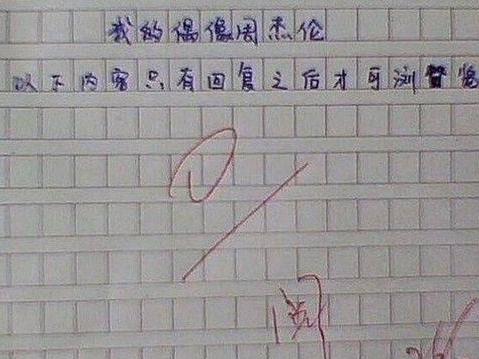 我的偶像周杰伦
以下内容只有回复之后才可浏览
0
阅